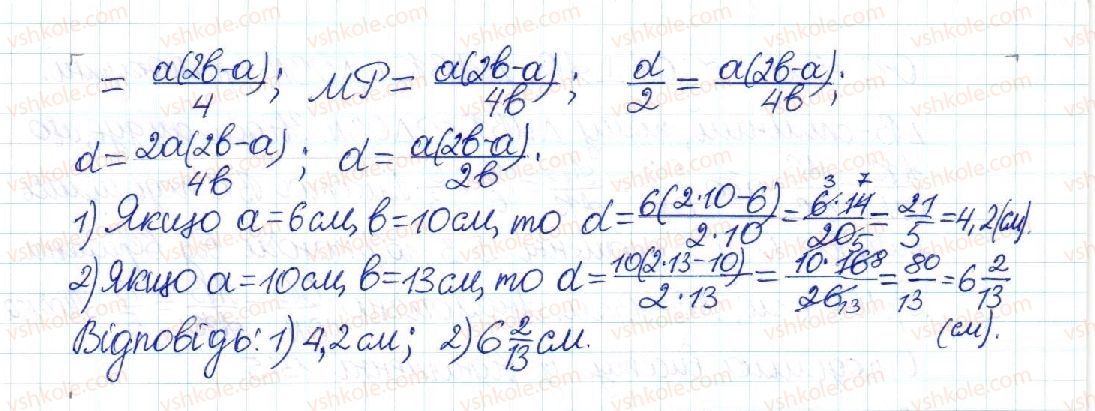 = a(2b-a)/4; MP = a(2b-a)/4b; d/2 = a(2b-a)/4b;
d = 2a(2b-a)/4b; d = a(2b-a)/2b.
1) Якщо a=6см, b=10см, то d = 6(2·10-6)/2·10 = 6·14/20 = 21/5 = 4,2(см).
2) Якщо a=10см, b=13см, то d = 10(2·13-10)/2·13 = 10·16/26 = 80/13 = 6 2/13 (см).
Відповідь: 1) 4,2см; 2) 6 2/13 см.